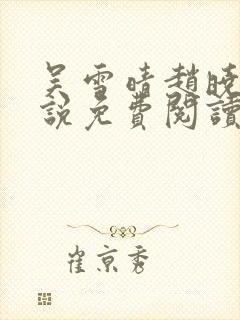 吴雪晴趙晓
說免費閱讀
崔京秀